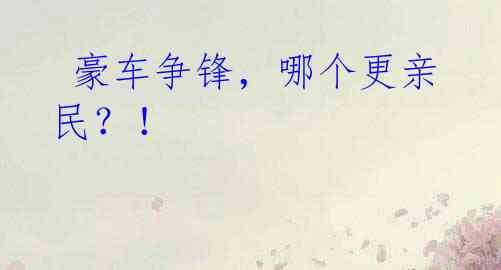 豪车争锋，哪个更亲
民？！